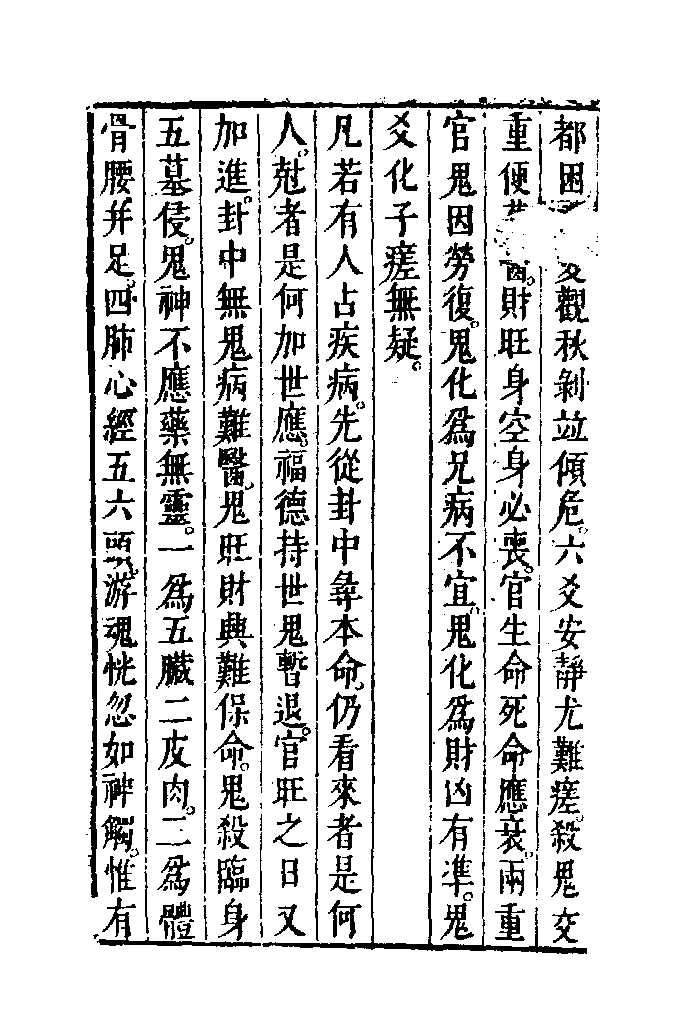 都困觀秋剝竝傾危。六爻安靜尤難瘥。殺鬼交
重便財旺身空身必喪。官生命死命應衰。兩重
官鬼因勞復。鬼化爲兄病不宜。鬼化爲財凶有準。鬼
爻化子瘥無疑。
凡若有人占疾病。先從卦中尋本命。仍看來者是何
人。尅者是何加世應。福德持世鬼暫退。官旺之日又
加進。卦中無鬼病難醫。鬼旺財興難保命。鬼殺臨身
五墓侵。鬼神不應藥無靈。一爲五臟二皮肉。三爲體
骨腰并足。四肺心經五六頭。游魂恍忽如神觸。惟有